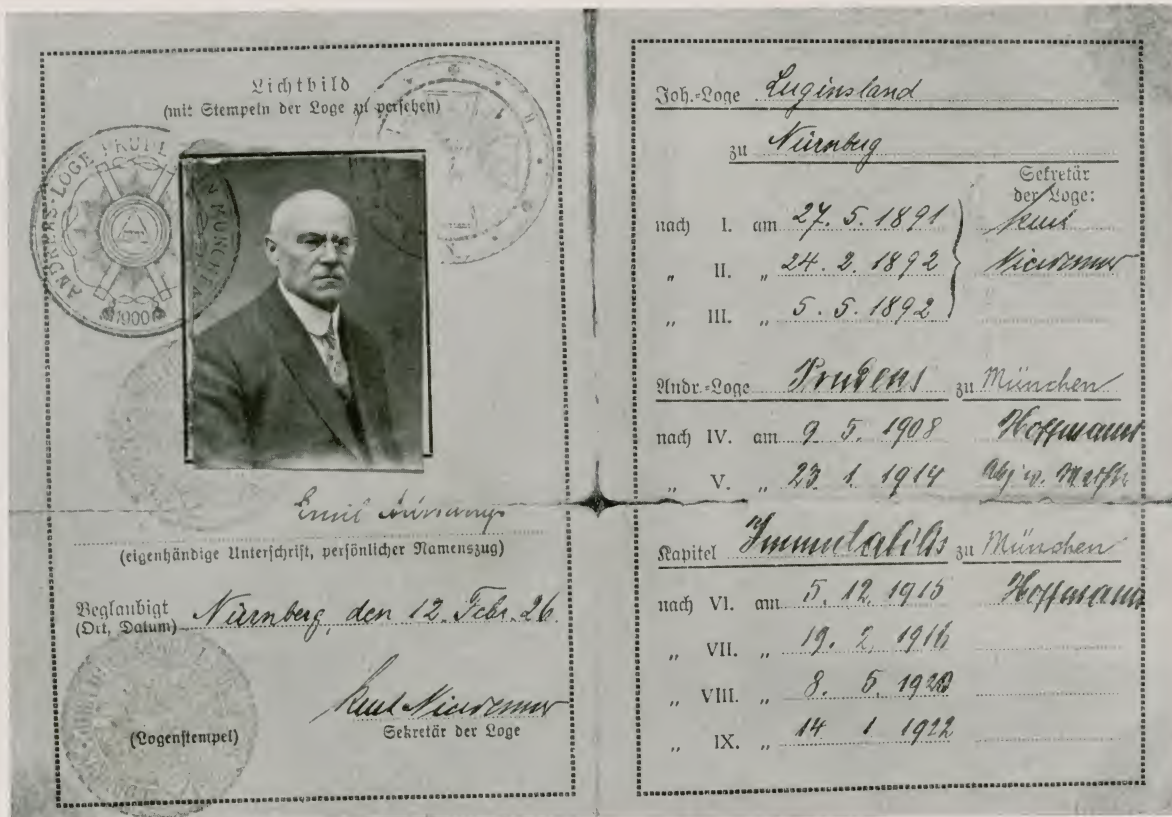 Lichtbild
(mit Stempeln der Loge zu versehen)
ANDREAS-LOGE PRUDENS MÜNCHEN
1900
Emil
(eigenhändige Unterschrift, persönlicher Namenszug)
Beglaubigt
(Ort, Datum) Nürnberg, den 12. Febr. 26.
(Logenstempel)
Sekretär der Loge
Joh.-Loge Luginsland
zu Nürnberg
Sekretär
der Loge:
nach I. am 27. 5. 1891
„ II. „ 24. 2. 1892
„ III. „ 5. 5. 1892
Andr.-Loge Prudens zu München
nach IV. am 9. 5. 1908 Hoffmann
„ V. „ 23. 1. 1914
Kapitel zu München
nach VI. am 5. 12. 1915 Hoffmann
„ VII. „ 19. 2. 1916
„ VIII. „ 8. 5. 1920
„ IX. „ 14 1 1922